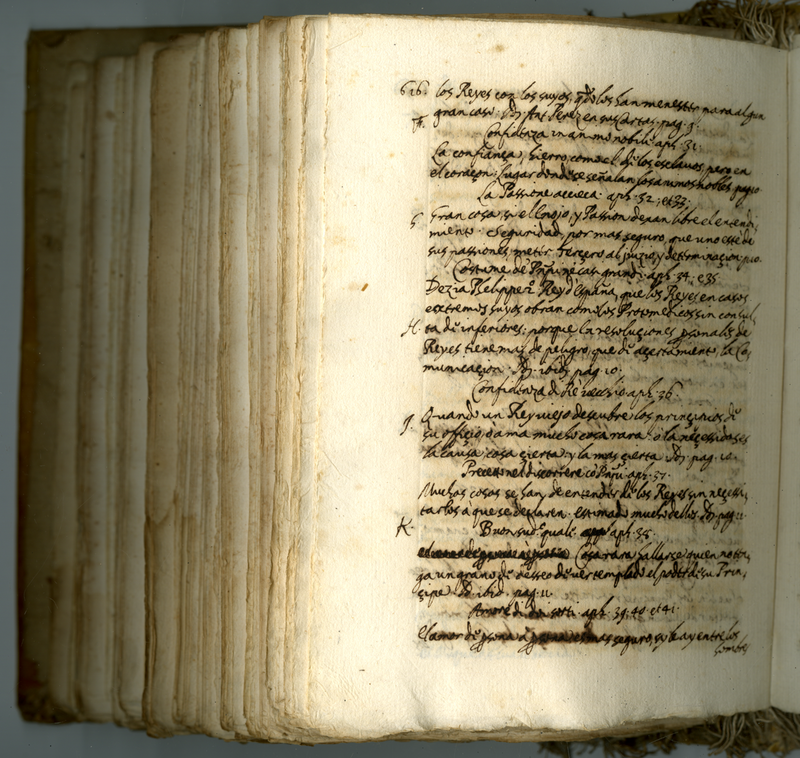 616. los Reyes con los suyos, qdo los han menester para algun
gran caso. Ant. Perez en sus Cartas. pag. 3.
F. Confidenza in animo nobile. aph. 31.
La confiança, hierro, como el de los esclavos, pero en
el coraçon: lugar donde se señalan los animos nobles. pag. 10
La Passione accieca. aph. 32. et 33.
G. Gran cosa, si el Enojo, y Passion dexan libre el entendi-
miento. Seguridad, por mas seguro, que uno esté de
sus passiones, metir tercero al juizio, y determinaçion. p. 10.
Costume de Prñi ne casi grandi. aph. 34. e 35.
Dezia Phelippe 2. Rey d'España, que los Reyes en casos
extremos suyos obran como los Protomedicos sin consul-
H. ta de inferiores: porque la resoluçiones psonales de
Reyes tiene mas de peligro, que de açertamiento, la Co-
municaçion. ibid. pag. 10.
Confidenza di Re vecchio. aph. 36.
J. Quando un Rey viejo descubre los prinçipios de
su officio, ò ama mucho cosa rara: ò la neçessidad es
la causa; cosa çierta: y la mas çierta. pag. 10.
Precetto nel discorrere cò Prñi. aph. 37.
Muchas cosas se han de entender de los Reyes sin neçessi-
tarlos a que se declaren. estimado mucho dellos. pag. 11.
K. Buon sud.o quale. aph. 38.
Cosa rara hallarse quien no ten-
ga un grano de desseo de ver templado el poder de su Prin-
çipe. ibid. pag. 11.
Amore di doi sorti. aph. 39. 40. et 41.
El amor de psona à mas seguro, si le ay entre los
hombres